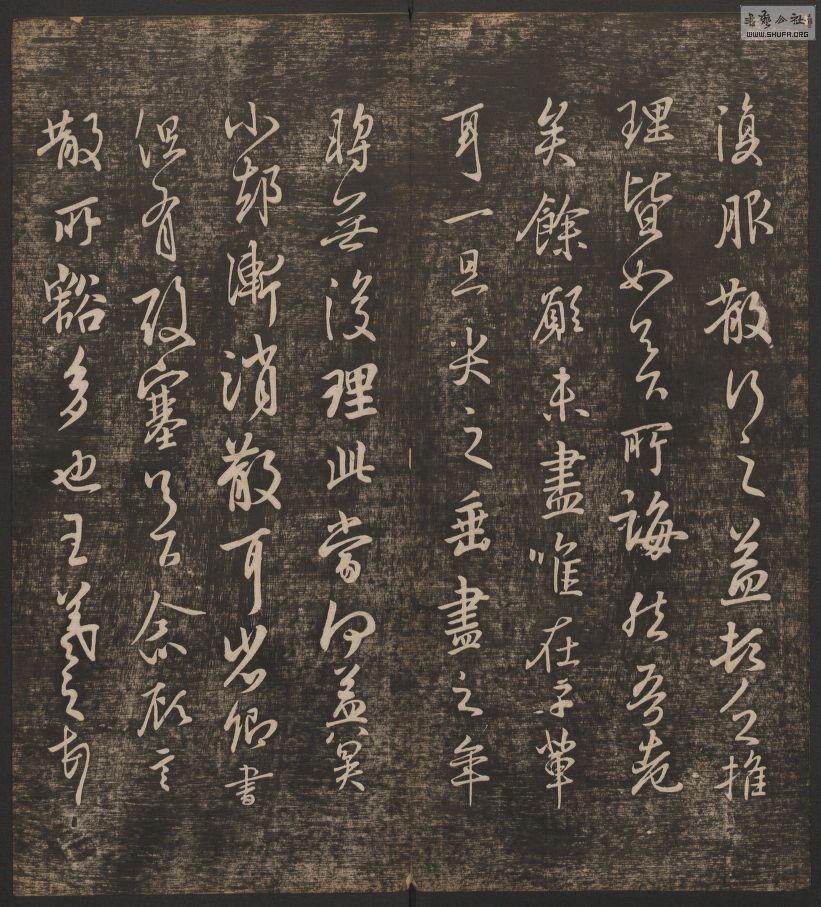 復服散行之益頓乏推
理皆如足下所誨然吾老
矣餘願未盡唯在子輩
耳一旦哭之垂盡之年
將無復理此當何益冀
小却漸消散耳省卿書
但有酸塞足下念顧言
散所豁多也王羲之頓首
書藝公社
WWW.SHUFA.ORG